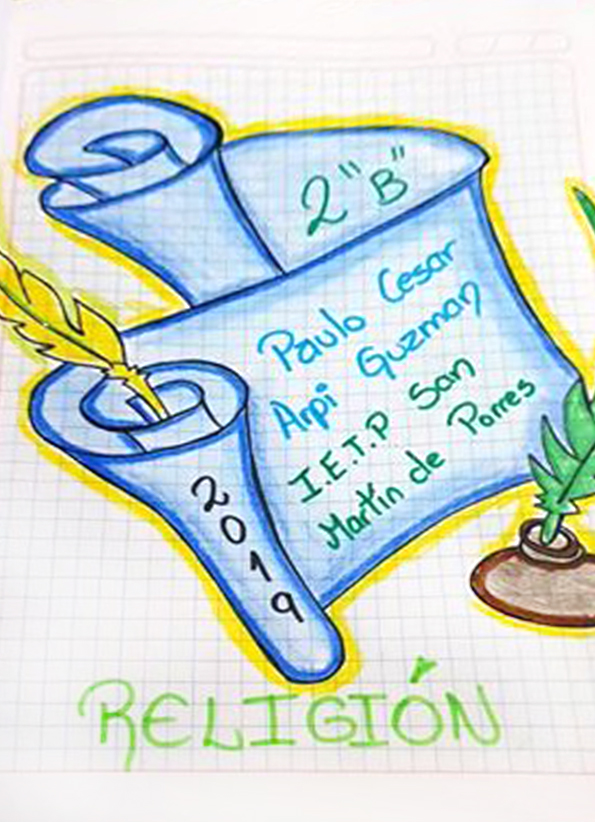 2 "B"
Paulo Cesar
Arpi Guzman
I.E.T.P San
Martín de Porres
2019
RELIGIÓN